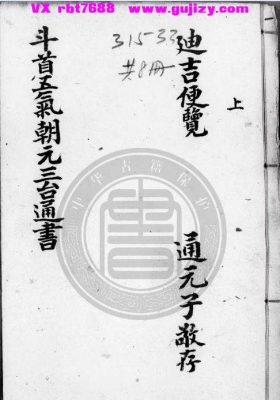 VX rbt7688 www.gujizy.com
上
迪吉便覽
通元子敬存
315-33
共8冊
斗首五氣朝元三台通書
中华古籍保护